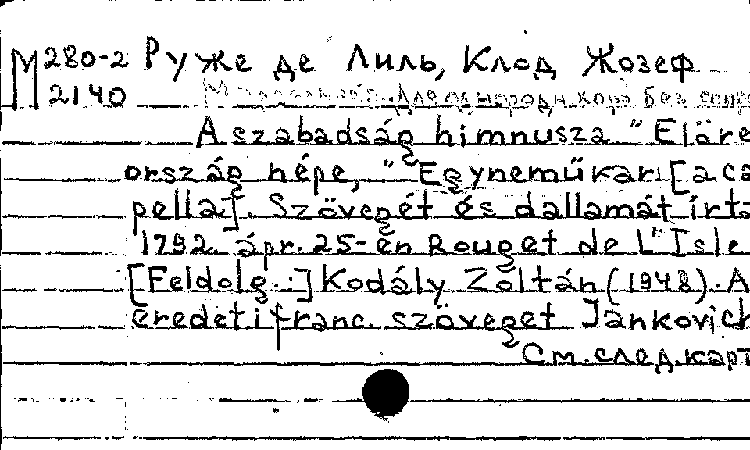 М 280-2 Руже де Лиль, Клод Жозеф
2140 Для однородн. хора без сопр
A szabadság himnusza "Előre
ország népe, " Egyneműkar [a ca
pella]. Szövegét és dallamát írta
1792. ápr. 25-én Rouget de L'Isle
[Feldolg..:] Kodály Zoltán (1948). A
eredeti franc. szöveget Jankovich
См. след. карт